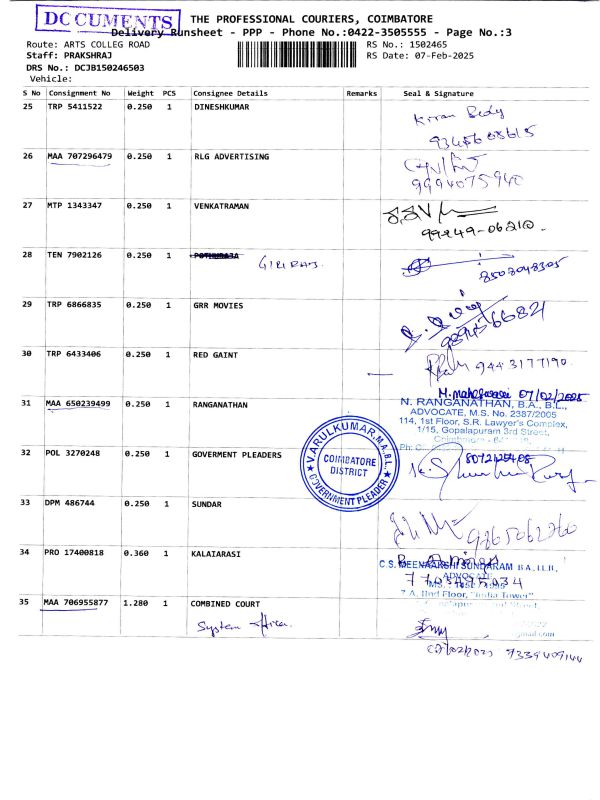 DOCUMENTS
THE PROFESSIONAL COURIERS, COIMBATORE
Delivery Runsheet - PPP - Phone No.:0422-3505555 - Page No.:3
Route: ARTS COLLEG ROAD RS No.: 1502465
Staff: PRAKSHRAJ RS Date: 07-Feb-2025
DRS No.: DCJB150246503
Vehicle:
S No Consignment No Weight PCS Consignee Details Remarks Seal & Signature
25 TRP 5411522 0.250 1 DINESHKUMAR
26 MAA 707296479 0.250 1 RLG ADVERTISING
9994075940
27 MTP 1343347 0.250 1 VENKATRAMAN
99949-06210.
28 TEN 7902126 0.250 1 GIRIRAJ.
8508048305
29 TRP 6866835 0.250 1 GRR MOVIES
30 TRP 6433406 0.250 1 RED GAINT
9443177190
31 MAA 650239499 0.250 1 RANGANATHAN
07/02/2025
N. RANGANATHAN, B.A., B.L.,
ADVOCATE, M.S. No. 2387/2005
114, 1st Floor, S.R. Lawyer's Complex,
1/15, Gopalapuram 3rd Street,
32 POL 3270248 0.250 1 GOVERMENT PLEADERS
V.ARULKUMAR, M.A., B.L.
COIMBATORE
DISTRICT
GOVERNMENT PLEADER
33 DPM 486744 0.250 1 SUNDAR
9865062260
34 PRO 17400818 0.360 1 KALAIARASI
C.S. MEENAAKSHI SUNDARAM B.A., LL.B.,
ADVOCATE
7 A, IInd Floor, "India Tower"
35 MAA 706955877 1.280 1 COMBINED COURT
System
gmail.com
9339409144